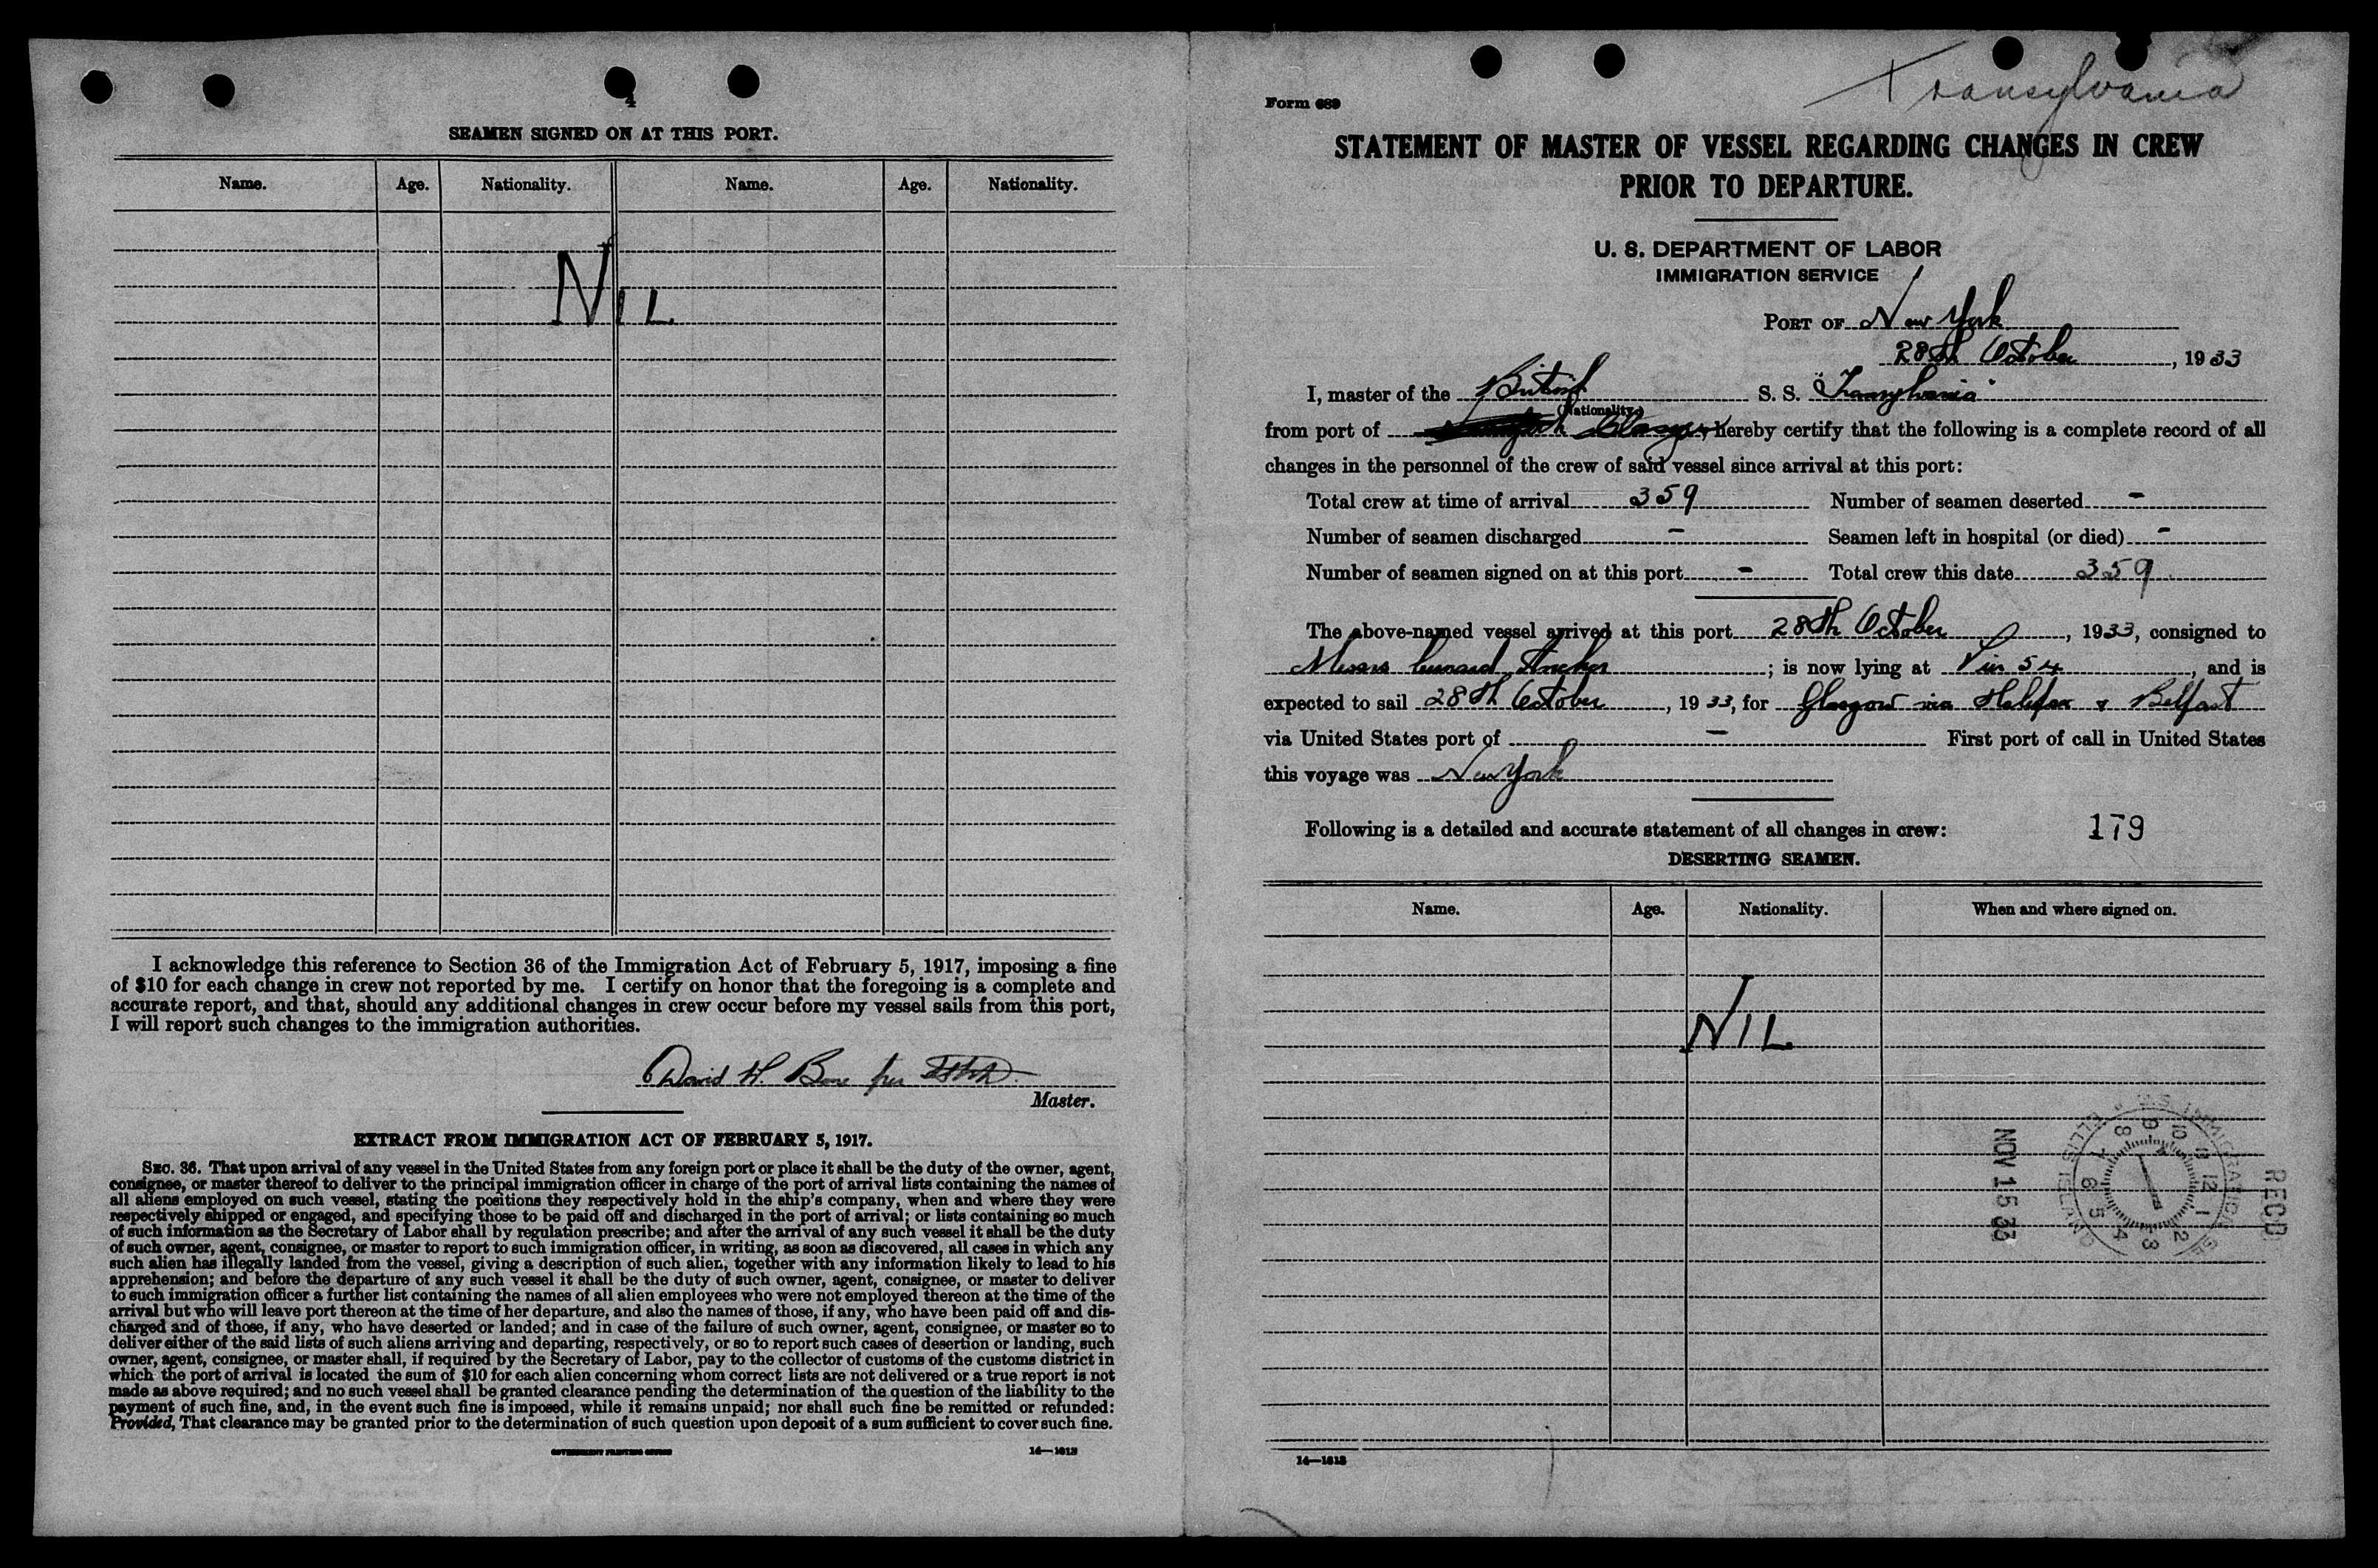 4
SEAMEN SIGNED ON AT THIS PORT.
Name. Age. Nationality. Name. Age. Nationality.
NIL
I acknowledge this reference to Section 36 of the Immigration Act of February 5, 1917, imposing a fine
of $10 for each change in crew not reported by me. I certify on honor that the foregoing is a complete and
accurate report, and that, should any additional changes in crew occur before my vessel sails from this port,
I will report such changes to the immigration authorities.
David H. Bone per
Master.
EXTRACT FROM IMMIGRATION ACT OF FEBRUARY 5, 1917.
SEC. 36. That upon arrival of any vessel in the United States from any foreign port or place it shall be the duty of the owner, agent,
consignee, or master thereof to deliver to the principal immigration officer in charge of the port of arrival lists containing the names of
all aliens employed on such vessel, stating the positions they respectively hold in the ship's company, when and where they were
respectively shipped or engaged, and specifying those to be paid off and discharged in the port of arrival; or lists containing so much
of such information as the Secretary of Labor shall by regulation prescribe; and after the arrival of any such vessel it shall be the duty
of such owner, agent, consignee, or master to report to such immigration officer, in writing, as soon as discovered, all cases in which any
such alien has illegally landed from the vessel, giving a description of such alien, together with any information likely to lead to his
apprehension; and before the departure of any such vessel it shall be the duty of such owner, agent, consignee, or master to deliver
to such immigration officer a further list containing the names of all alien employees who were not employed thereon at the time of the
arrival but who will leave port thereon at the time of her departure, and also the names of those, if any, who have been paid off and dis-
charged and of those, if any, who have deserted or landed; and in case of the failure of such owner, agent, consignee, or master so to
deliver either of the said lists of such aliens arriving and departing, respectively, or so to report such cases of desertion or landing, such
owner, agent, consignee, or master shall, if required by the Secretary of Labor, pay to the collector of customs of the customs district in
which the port of arrival is located the sum of $10 for each alien concerning whom correct lists are not delivered or a true report is not
made as above required; and no such vessel shall be granted clearance pending the determination of the question of the liability to the
payment of such fine, and, in the event such fine is imposed, while it remains unpaid; nor shall such fine be remitted or refunded:
Provided, That clearance may be granted prior to the determination of such question upon deposit of a sum sufficient to cover such fine.
GOVERNMENT PRINTING OFFICE 14—1613
Transylvania
Form 689
STATEMENT OF MASTER OF VESSEL REGARDING CHANGES IN CREW
PRIOR TO DEPARTURE.
U. S. DEPARTMENT OF LABOR
IMMIGRATION SERVICE
PORT OF New York
28th October, 1933
I, master of the British S. S. "Transylvania"
(Nationality.)
from port of Glasgow, hereby certify that the following is a complete record of all
changes in the personnel of the crew of said vessel since arrival at this port:
Total crew at time of arrival 359 Number of seamen deserted -
Number of seamen discharged - Seamen left in hospital (or died) -
Number of seamen signed on at this port - Total crew this date 359
The above-named vessel arrived at this port 28th October, 1933, consigned to
Messrs Cunard Anchor; is now lying at Pier 54, and is
expected to sail 28th October, 1933, for Glasgow via Halifax & Belfast
via United States port of - First port of call in United States
this voyage was New York
Following is a detailed and accurate statement of all changes in crew: 179
DESERTING SEAMEN.
Name. Age. Nationality. When and where signed on.
NIL
REC'D
U.S. IMMIGRATION SE
ELLIS ISLAND
12 1 2 3 4 5 6 7 8 9 10 11
NOV 15 33
14—1613